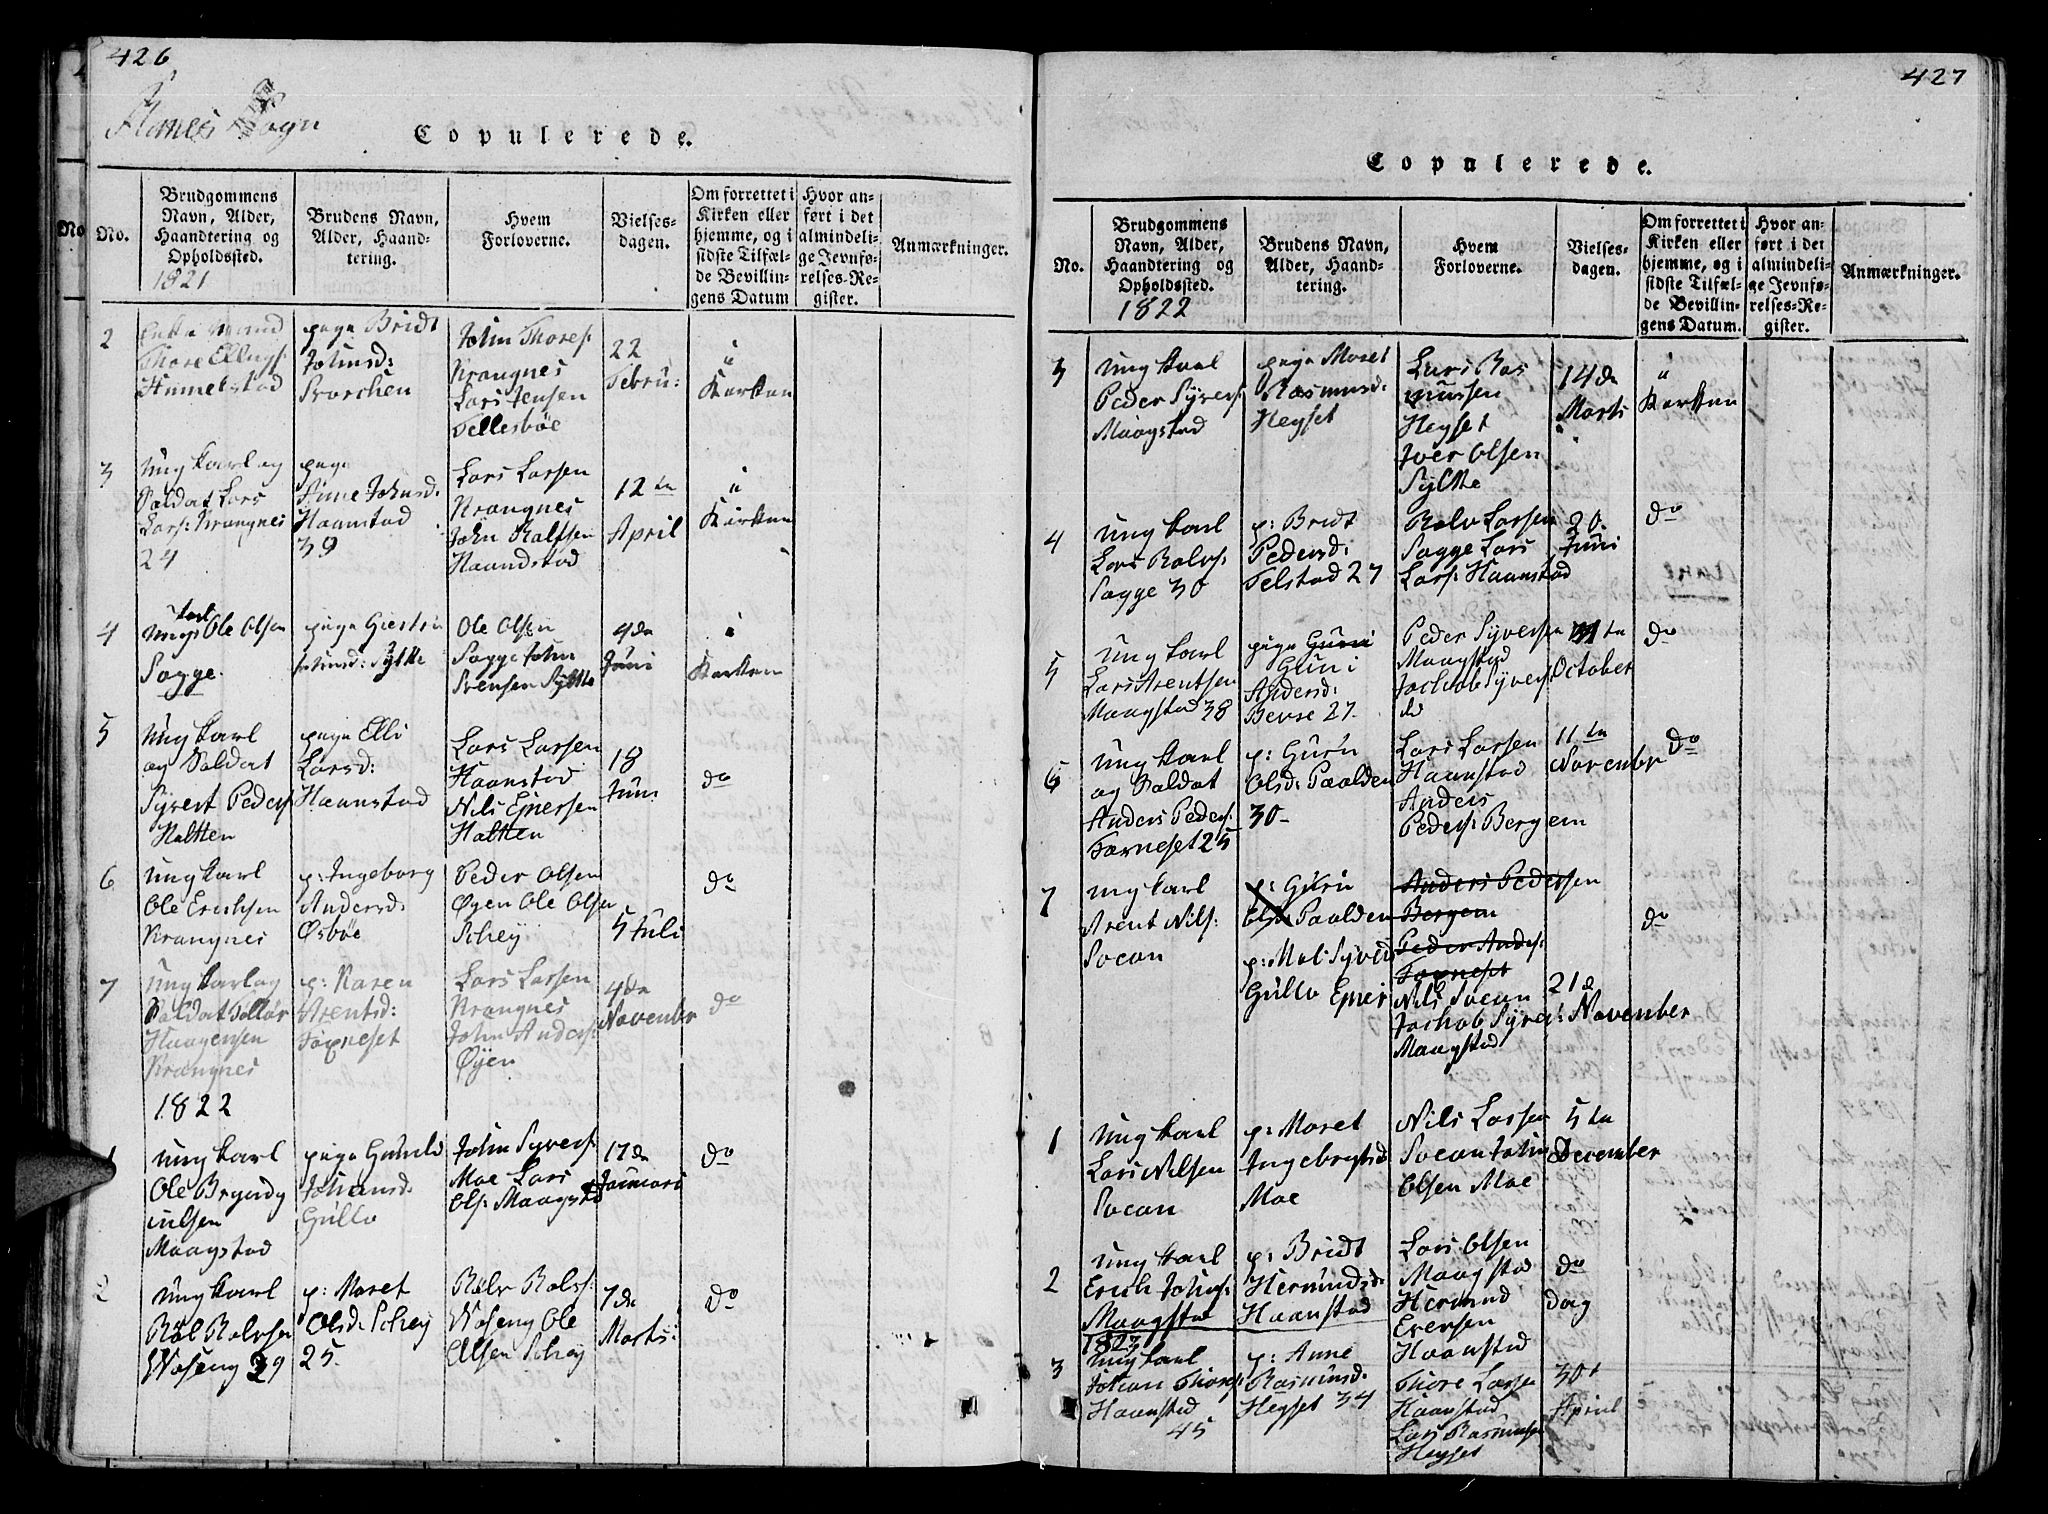 426
Sogn
Copulerede.
No.
Brudgommens
Navn, Alder,
Haandtering og
Opholdssted.
1821
Brudens Navn,
Alder, Haand-
tering.
Hvem
Forloverne.
Vielses-
dagen.
Om forrettet i
Kirken eller
hjemme, og i
sidste Tilfæl-
de Bevillin-
gens Datum
Hvor an-
ført i det
almindeli-
ge Jevnfø-
relses-Re-
gister.
Anmærkninger.
2
Enke Mand
Thore Ellings:
pige Bridt
Johnsd:
John Thores:
Krangnes
Lars Jensen
22
Febru:
i
Kirken
3
Ung karl og
Soldat Lars
Lars: Krangnes
24
pige
Anne Johnsd:
Haanstad
39
Lars Larsen
Krangnes
John Rolfsen
Haandstad
12te
April
i
Kirken
4
Ung karl Ole Olsen
Sogge
pige Giertru
Johnsd: Sylte
Ole Olsen
Sogge John
Svensen Sylte
4de
Juni
i
Kirken
5
Ung karl
og Soldat
Syvert Peders:
Haltten
pige Elli
Larsd:
Haanstad
Lars Larsen
Haanstad
Nils Ejnersen
Haltten
18
Juni
do
6
Ung karl
Ole Erichsen
Krangnes
p: Ingeborg
Andersd:
Øsbøe
Peder Olsen
Øyen Ole Olsen
Schey
5 Juli
do
7
Ung karl og
Soldat
Haagensen
Krangnes
p: Karen
Arentsd:
Lars Larsen
Krangnes
John Anders:
Øyen
4de
November
do
1822
1
Ung karl
Ole Bryndg
ulsen
Maagstad
pige Gunild
Johansd:
Gullo
John Syvers:
Moe Lars
Ols: Maagstad
17de
Januari
do
2
Ung karl
Rol Rolvsen
Woseng 29
p: Maret
Olsd: Schey
25.
Rolv Rolvs:
Woseng Ole
Olsen Schey
7de
Marts:
do
427
Copulerede.
No.
Brudgommens
Navn, Alder,
Haandtering og
Opholdssted.
1822
Brudens Navn,
Alder, Haand-
tering.
Hvem
Forloverne.
Vielses-
dagen.
Om forrettet i
Kirken eller
hjemme, og i
sidste Tilfæl-
de Bevillin-
gens Datum.
Hvor an-
ført i det
almindeli-
ge Jevnfø-
relses-Re-
gister.
Anmærkninger.
3
Ung karl
Peder Syvers:
Maagstad
pige Maret
Rasmusd:
Heyset
Lars Ras
mussen
Heyset
Iver Olsen
Sylte
14de
Marts
i
Kirken
4
Ung karl
Lars Rolvs:
Sogge 30
p: Bridt
Pedersd:
Felstad 27
Rolv Larsen
Sogge Lars
Lars: Haanstad
20.
Juni
do
5
Ung karl
Lars Arentsen
Maagstad 38
pige Guni
Guni
Andersd:
27.
Peder Syversen
Maagstad
Jachob Syvers:
do
October
do
6
Ung karl
og Soldat
Anders Peders:
25
p: Guru
Olsd: Paalden
30-
Lars Larsen
Haanstad
Anders
Peders: Bergem
11te
November
do
7
Ung karl
Arent Nils:
Socan
p: Guru
Paalden
p: Mali Syverd
Gullo
Anders Pedersen
Bergem
Peder Anders:
Nils Socan
Jachob Syvers:
Maagstad
21de
November
do
1
Ung karl
Lars Nilsen
Socan
p: Maret
Ingebrigtsd
Moe
Nils Larsen
Socan John
Olsen Moe
5te
December
2
Ung karl
Erich Johns:
Maagstad
p: Bridt
Hermundsd:
Haanstad
Lars Olsen
Maagstad
Hermund
Eversen
Haanstad
do
Dag
1823
3
Ung karl
Johan Thores:
Haanstad
45
p: Anne
Rasmusd:
Heyset 34
Thore Larsen
Haanstad
Lars Rasmusen
Heyset
30te
April